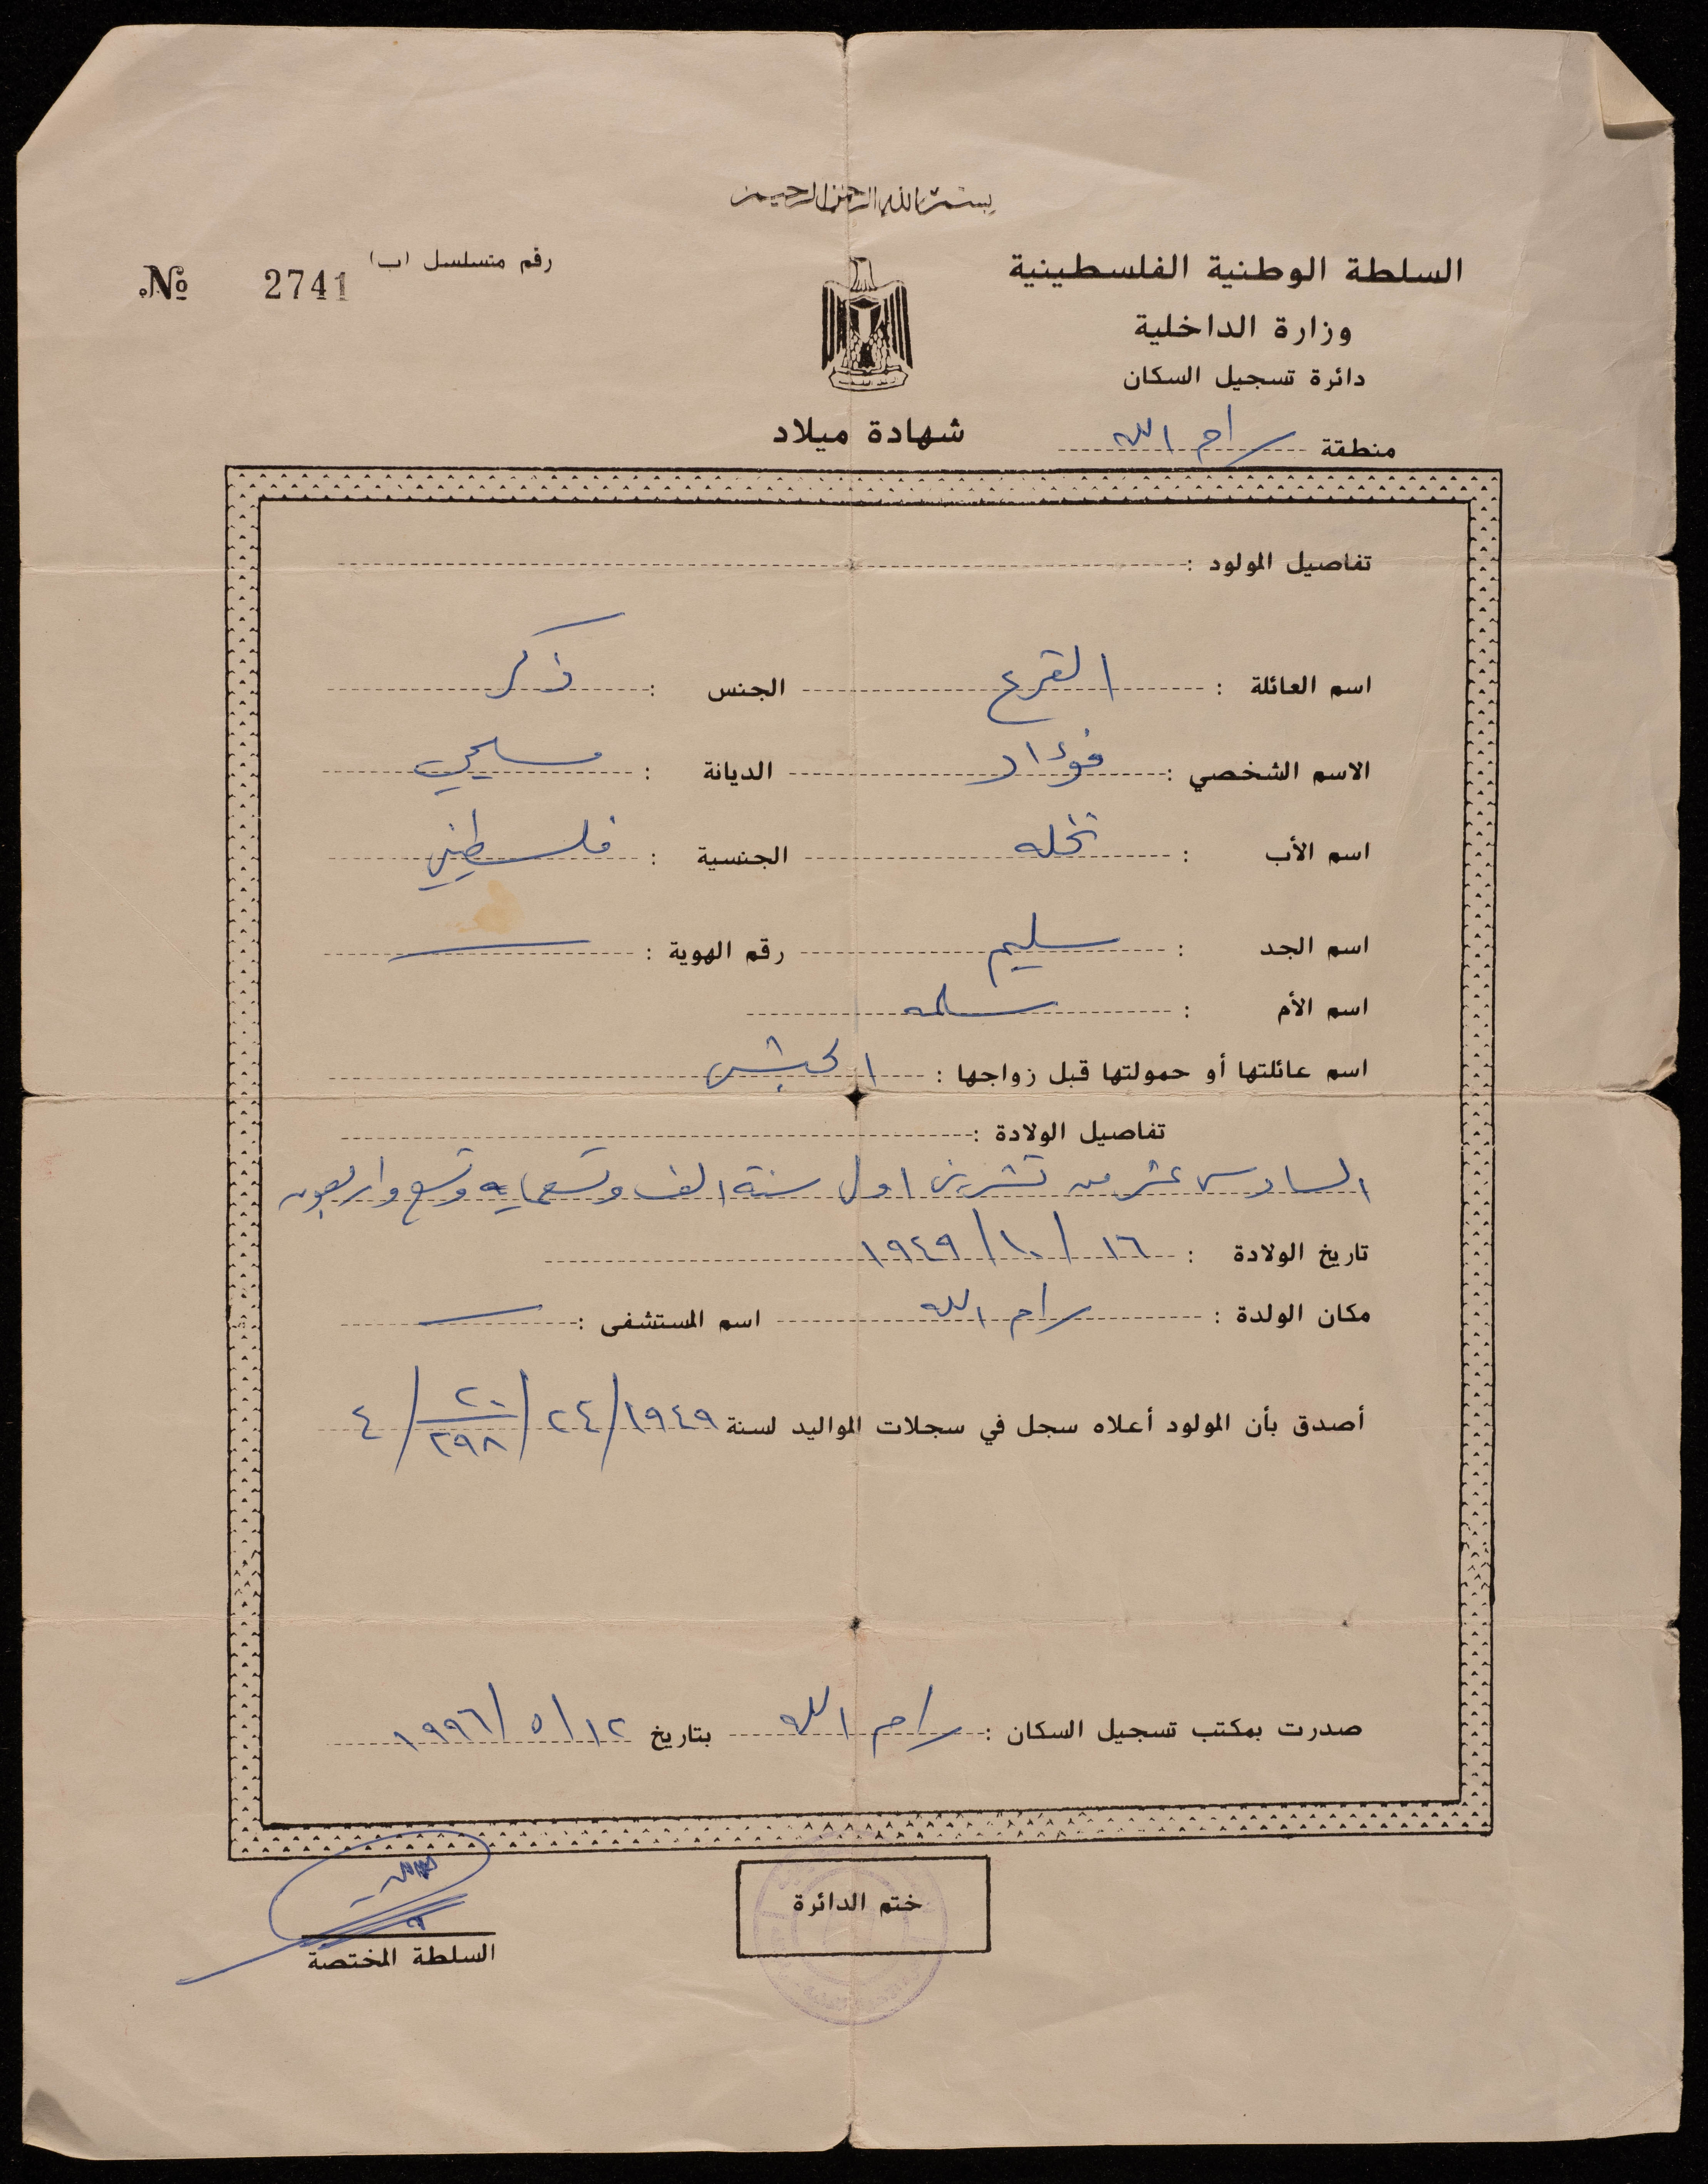 بسم الله الرحمن الرحيم
السلطة الوطنية الفلسطينية
وزارة الداخلية
دائرة تسجيل السكان
منطقة رام الله
رقم متسلسل (ب)
№ 2741
شهادة ميلاد
تفاصيل المولود :
اسم العائلة : القرع الجنس : ذكر
الاسم الشخصي : فؤاد الديانة : مسيحي
اسم الأب : نخله الجنسية : فلسطيني
اسم الجد : سليم رقم الهوية : —
اسم الأم : سلمه
اسم عائلتها أو حمولتها قبل زواجها :
تفاصيل الولادة :
السادس عشر من تشرين اول سنة الف وتسعمايه وتسع واربعون
تاريخ الولادة : ١٦/١٠/١٩٤٩
مكان الولدة : رام الله اسم المستشفى : —
أصدق بأن المولود أعلاه سجل في سجلات المواليد لسنة ١٩٤٩/٢٤/٢٠/٢٩٨/٤
صدرت بمكتب تسجيل السكان : رام الله بتاريخ ١٢/٥/١٩٩٦
ختم الدائرة
السلطة المختصة